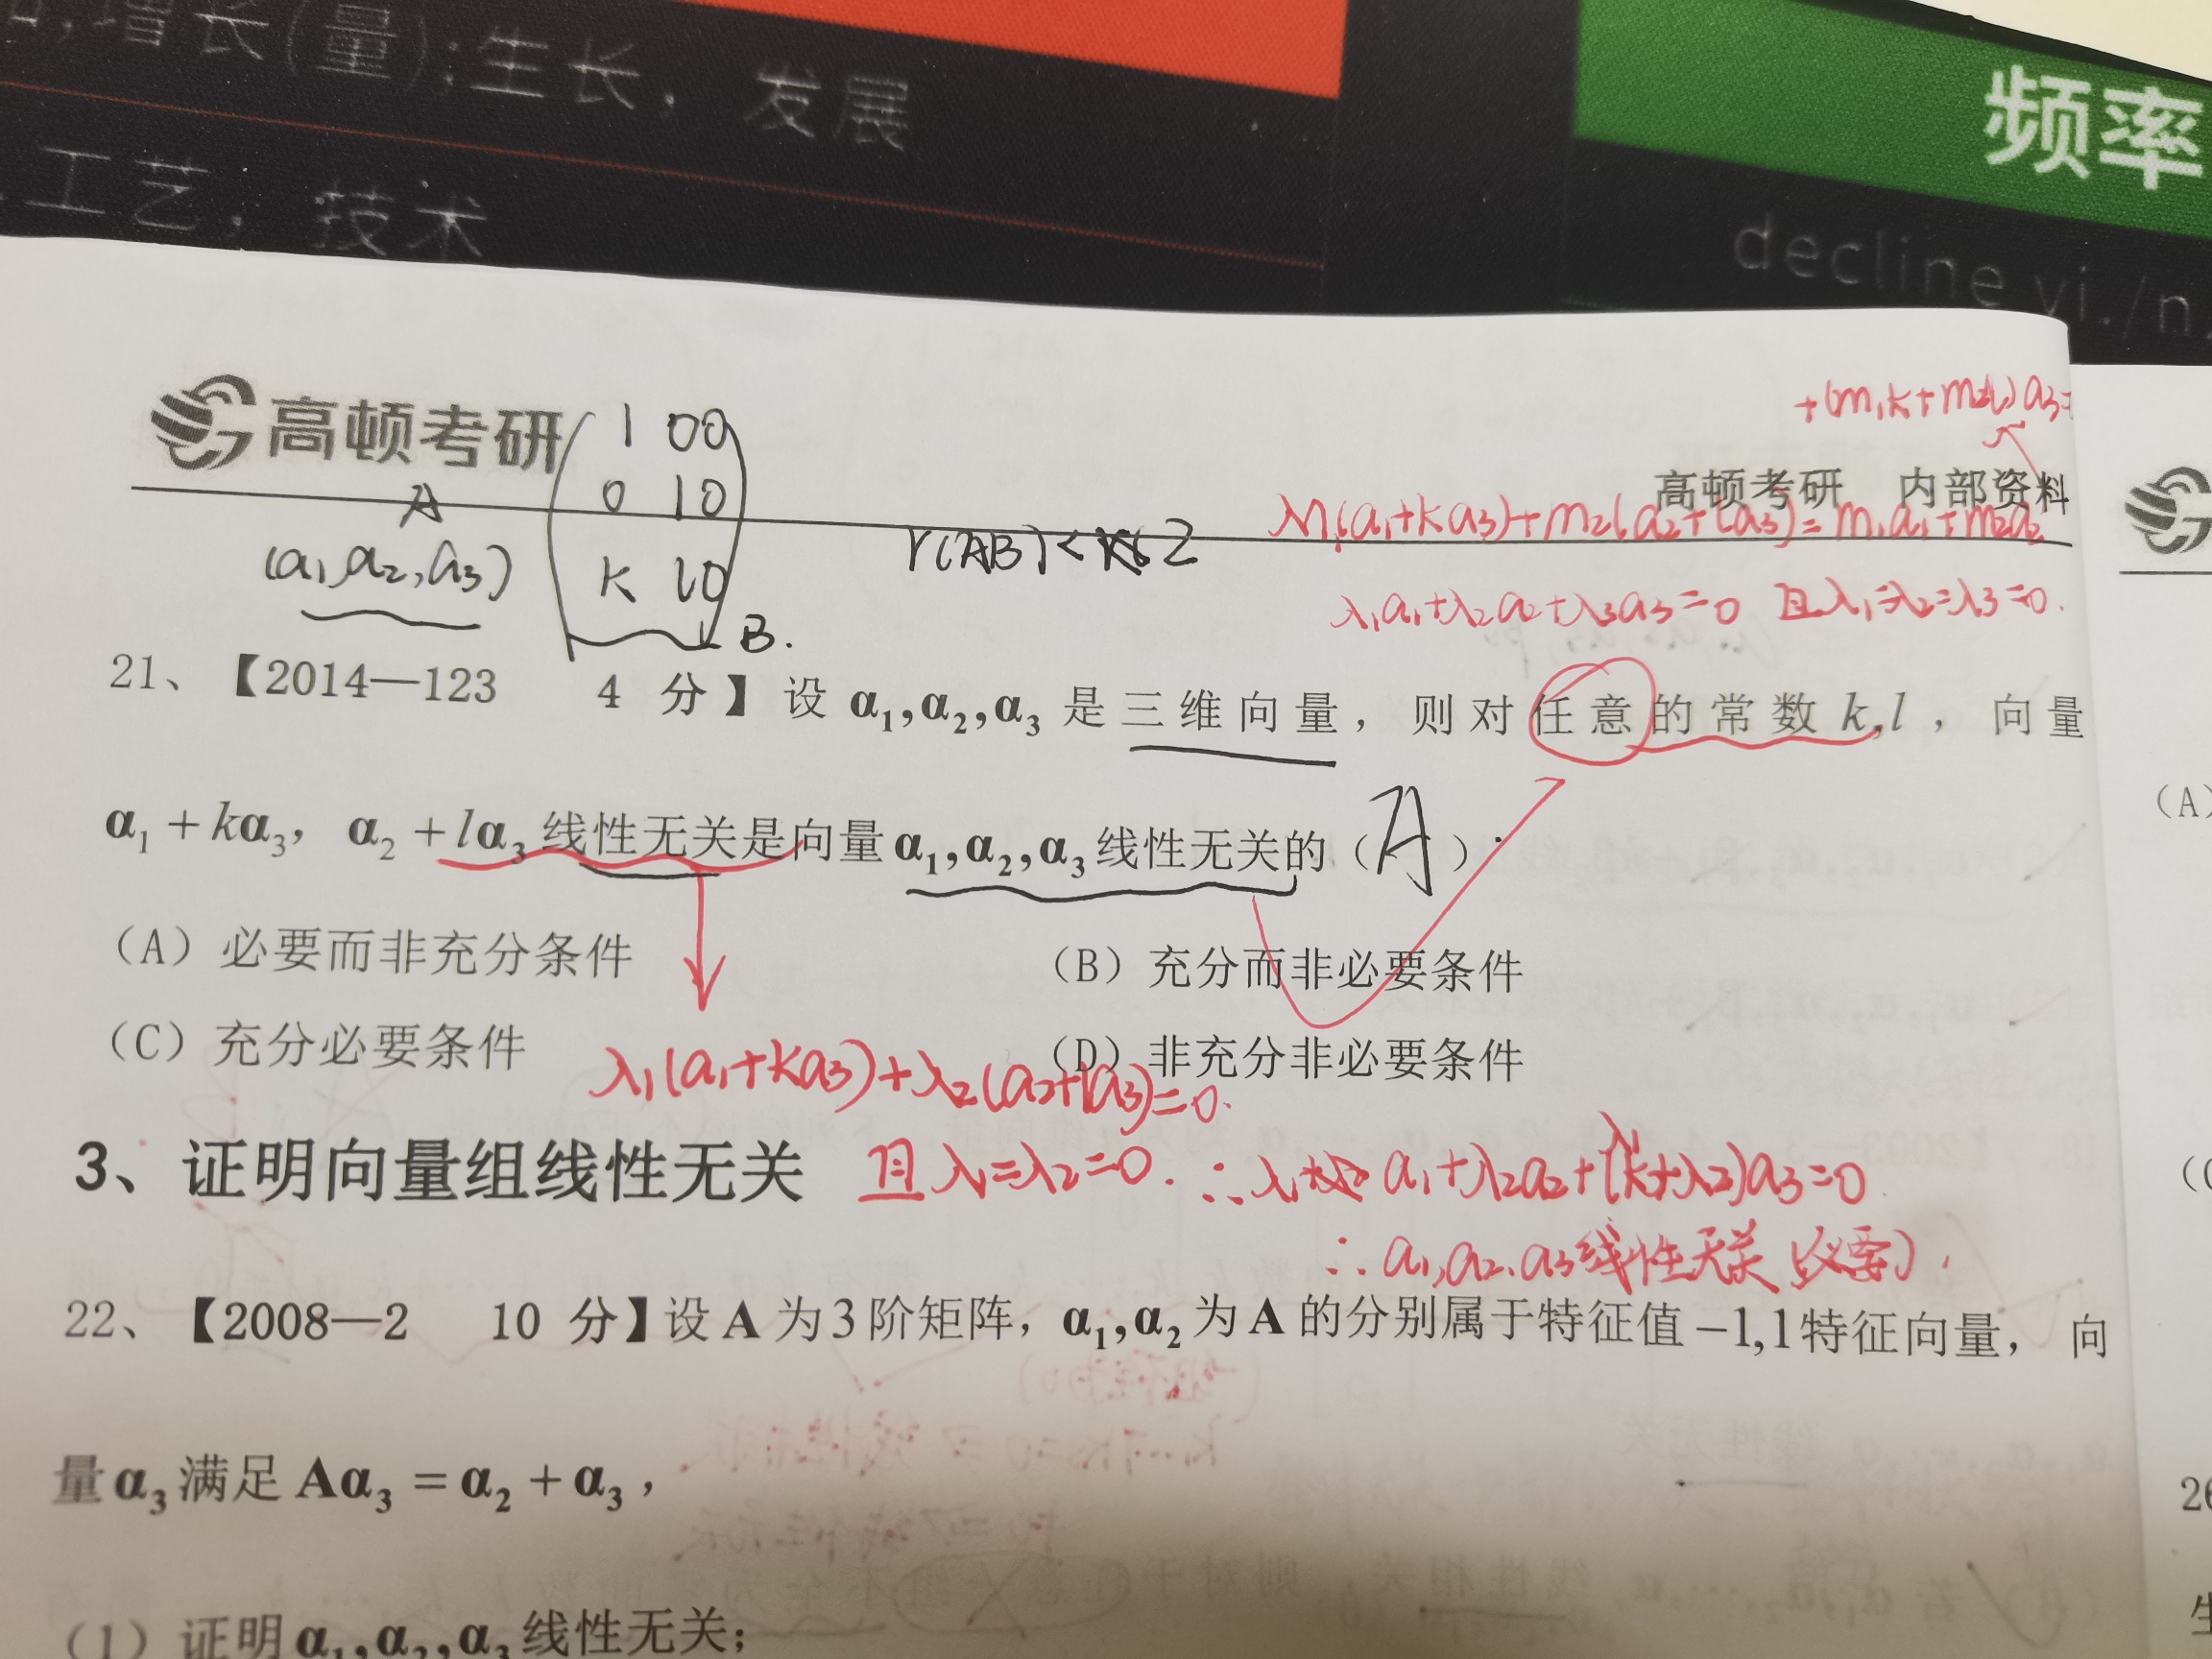 增长(量);生长，发展
工艺，技术
频率
decline vi./n.
高顿考研
高顿考研 内部资料
+(m₁k+m₂l)a₃=
m₁(a₁+ka₃)+m₂(a₂+la₃)=m₁a₁+m₂a₂
λ₁a₁+λ₂a₂+λ₃a₃=0 且λ₁=λ₂=λ₃=0.
1 0 0
0 1 0
k l 0
A
(a₁,a₂,a₃)
B.
r(AB)< 2
21、【2014—123 4 分】设 α₁,α₂,α₃ 是三维向量，则对任意的常数 k,l ，向量
α₁ + kα₃， α₂ + lα₃ 线性无关是向量 α₁,α₂,α₃ 线性无关的（A）.
（A）必要而非充分条件 （B）充分而非必要条件
（C）充分必要条件 （D）非充分非必要条件
λ₁(a₁+ka₃)+λ₂(a₂+la₃)=0.
3、证明向量组线性无关
且λ₁=λ₂=0. ∴λ₁ a₁+λ₂a₂+(λ₁k+λ₂)a₃=0
∴a₁,a₂.a₃线性无关(必要).
22、【2008—2 10 分】设 A 为 3 阶矩阵，α₁,α₂ 为 A 的分别属于特征值 −1,1 特征向量，向
量 α₃ 满足 Aα₃ = α₂ + α₃ ，
（1）证明 α₁,α₂,α₃ 线性无关；
（A）
26